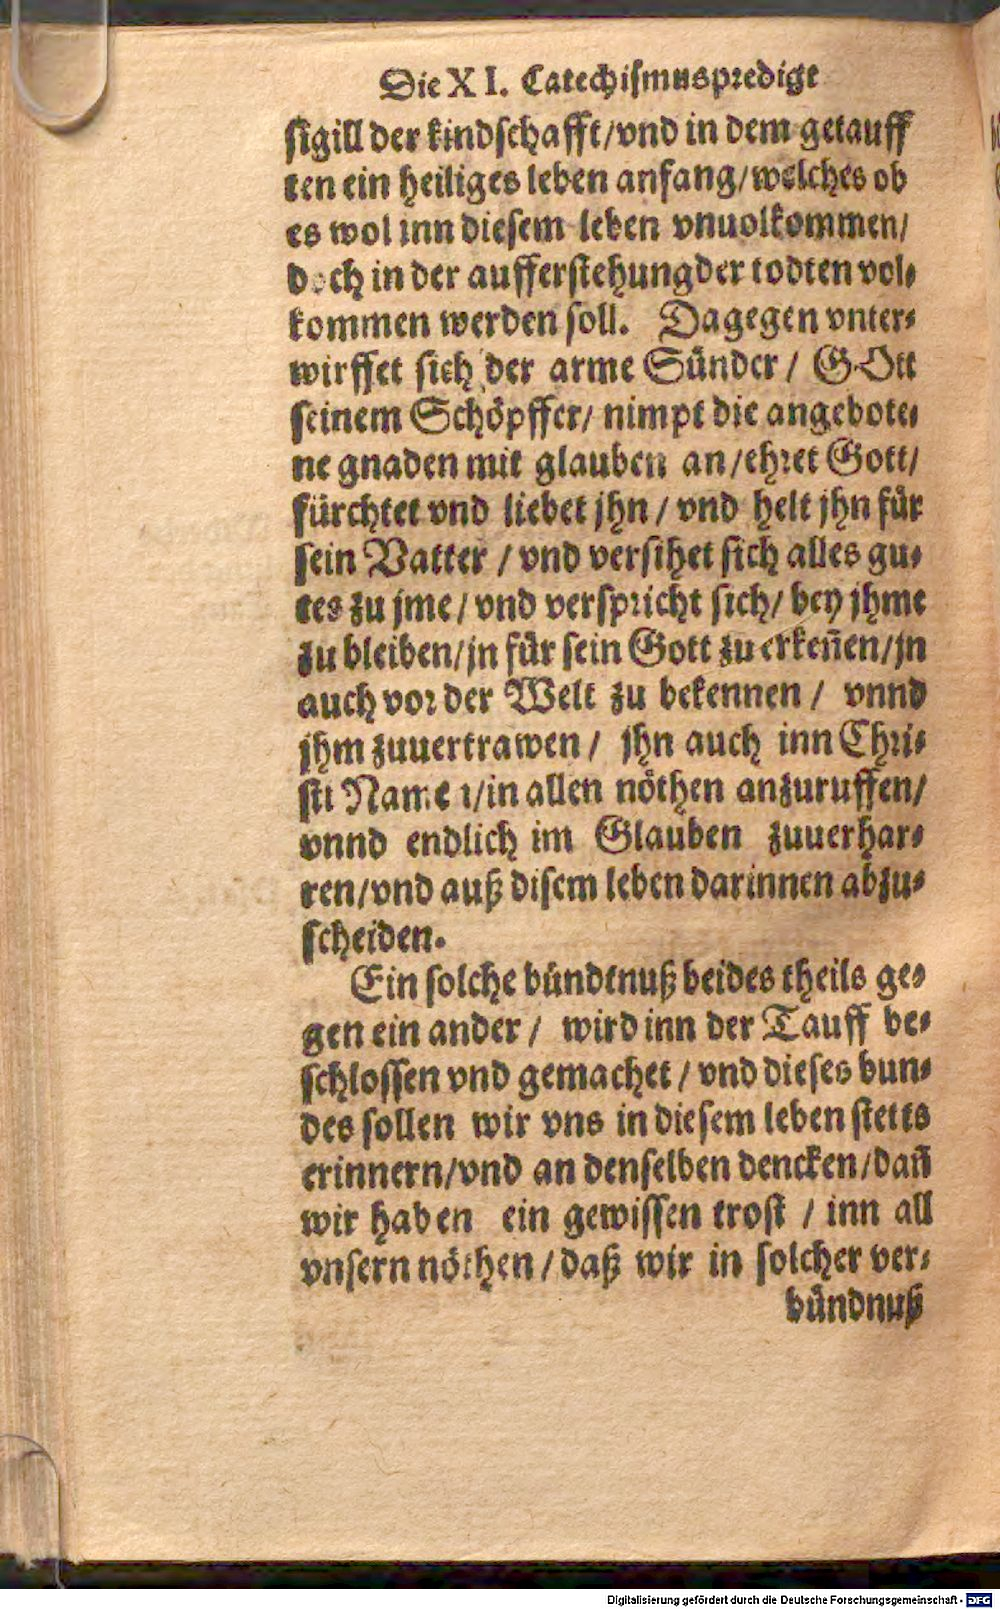 Die XI. Catechismuspredigt
sigill der kindschafft/vnd in dem getauff
ten ein heiliges leben anfang/welches ob
es wol inn diesem leben vnuolkommen/
doch in der aufferstehung der todten vol⸗
kommen werden soll. Dagegen vnter⸗
wirffet sich der arme Sünder / GOtt
seinem Schöpffer/ nimpt die angebote⸗
ne gnaden mit glauben an/ehret Gott/
fürchtet vnd liebet jhn / vnd helt jhn für
sein Vatter / vnd versihet sich alles gu⸗
tes zu jme/ vnd verspricht sich/ bey jhme
zu bleiben/jn für sein Gott zu erkeñen/jn
auch vor der Welt zu bekennen / vnnd
jhm zuuertrawen / jhn auch inn Chri⸗
sti Namen/in allen nöthen anzuruffen/
vnnd endlich im Glauben zuuerhar⸗
ren/vnd auß disem leben darinnen abzu⸗
scheiden.
Ein solche bündtnuß beides theils ge⸗
gen ein ander / wird inn der Tauff be⸗
schlossen vnd gemachet / vnd dieses bun⸗
des sollen wir vns in diesem leben stetts
erinnern/vnd an denselben dencken/dañ
wir haben ein gewissen trost / inn all
vnsern nöthen / daß wir in solcher ver⸗
bündnuß
Digitalisierung gefördert durch die Deutsche Forschungsgemeinschaft - DFG